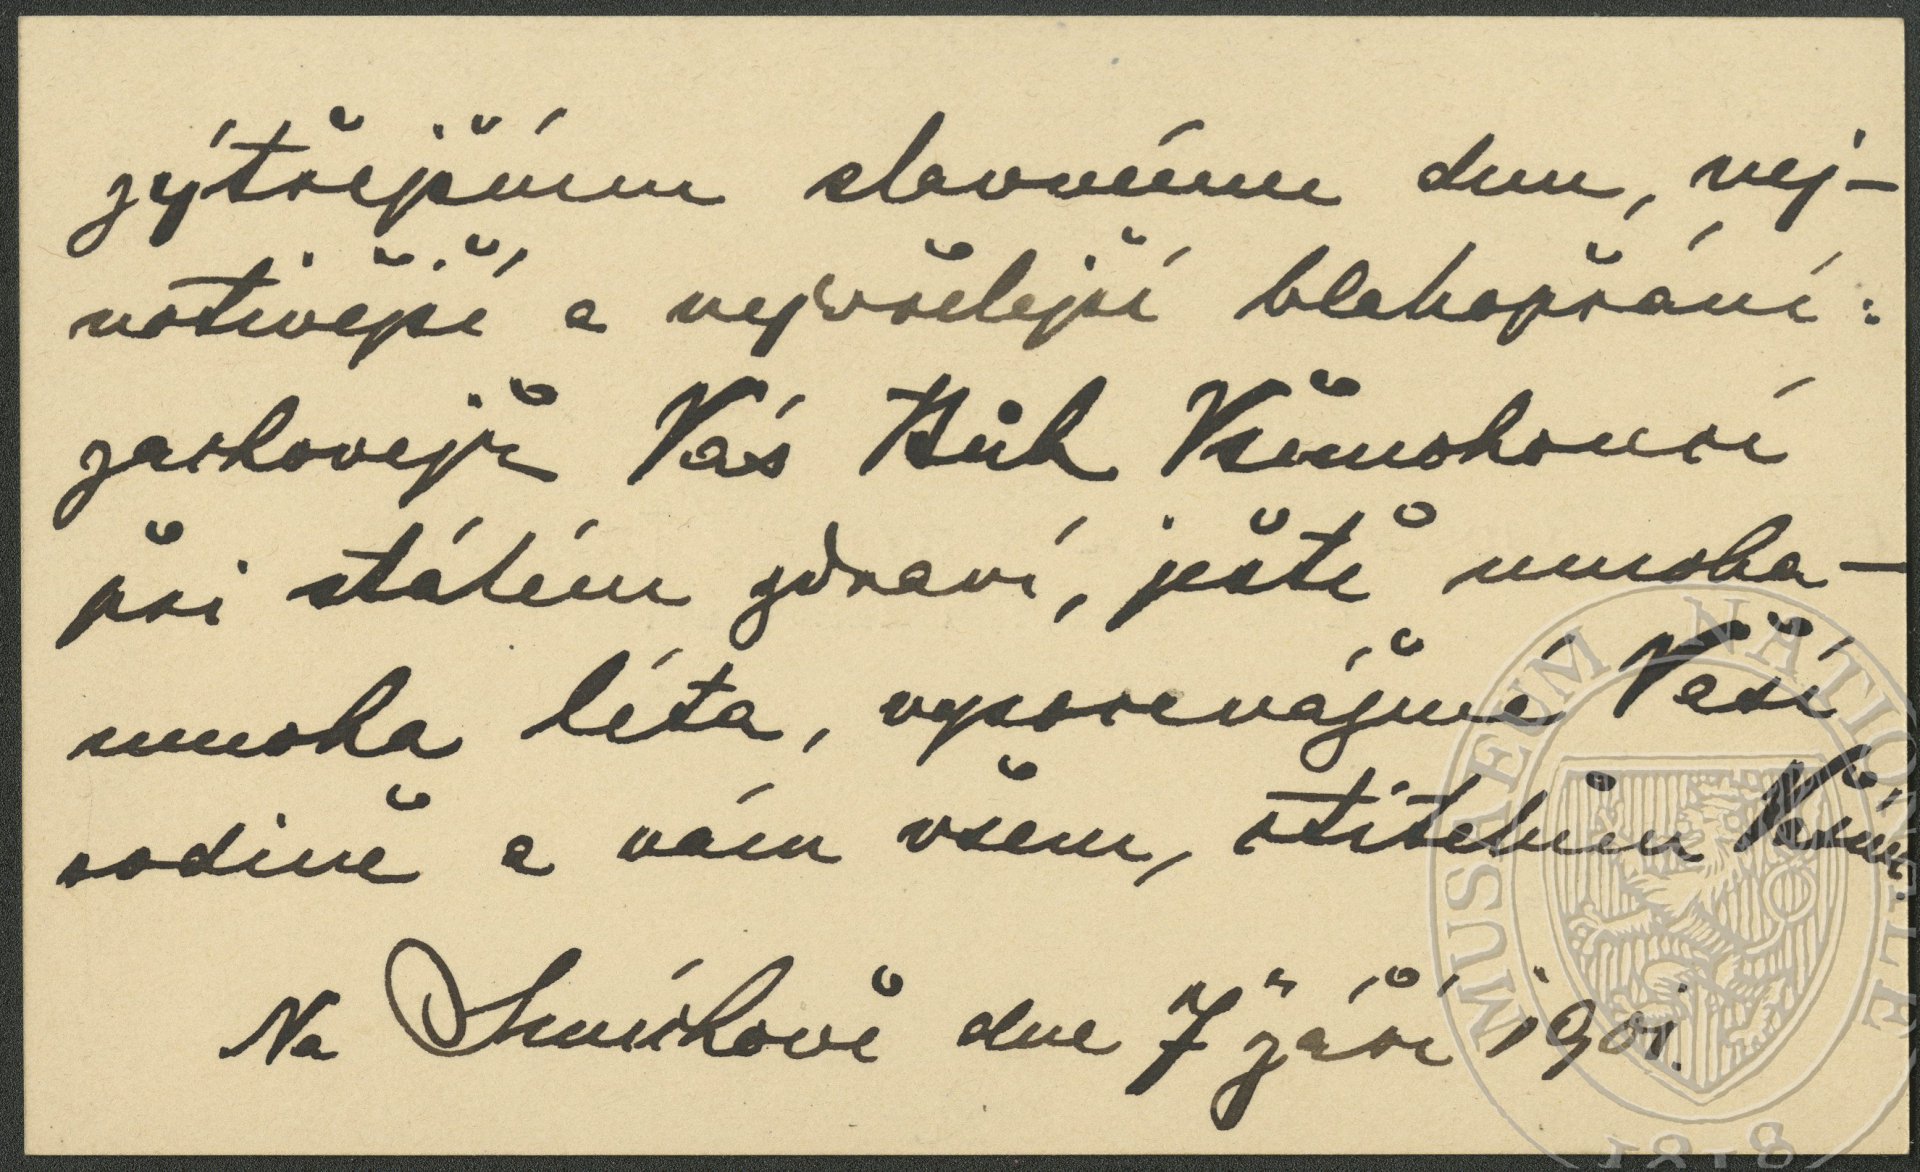 zýtřejším slavnému dnu, nej-
uctivější a nejvřelejší blahopřání:
zachovejž Vás Bůh Všemohoucí
při stálém zdraví, ještě mnoha-
mnoha léta, vyporevájmé Vaší
rodině a nám všem, ctitelům Vašim.
Na Smíchově dne 7 září 1901.
MUSAEUM NATIONALE
1818